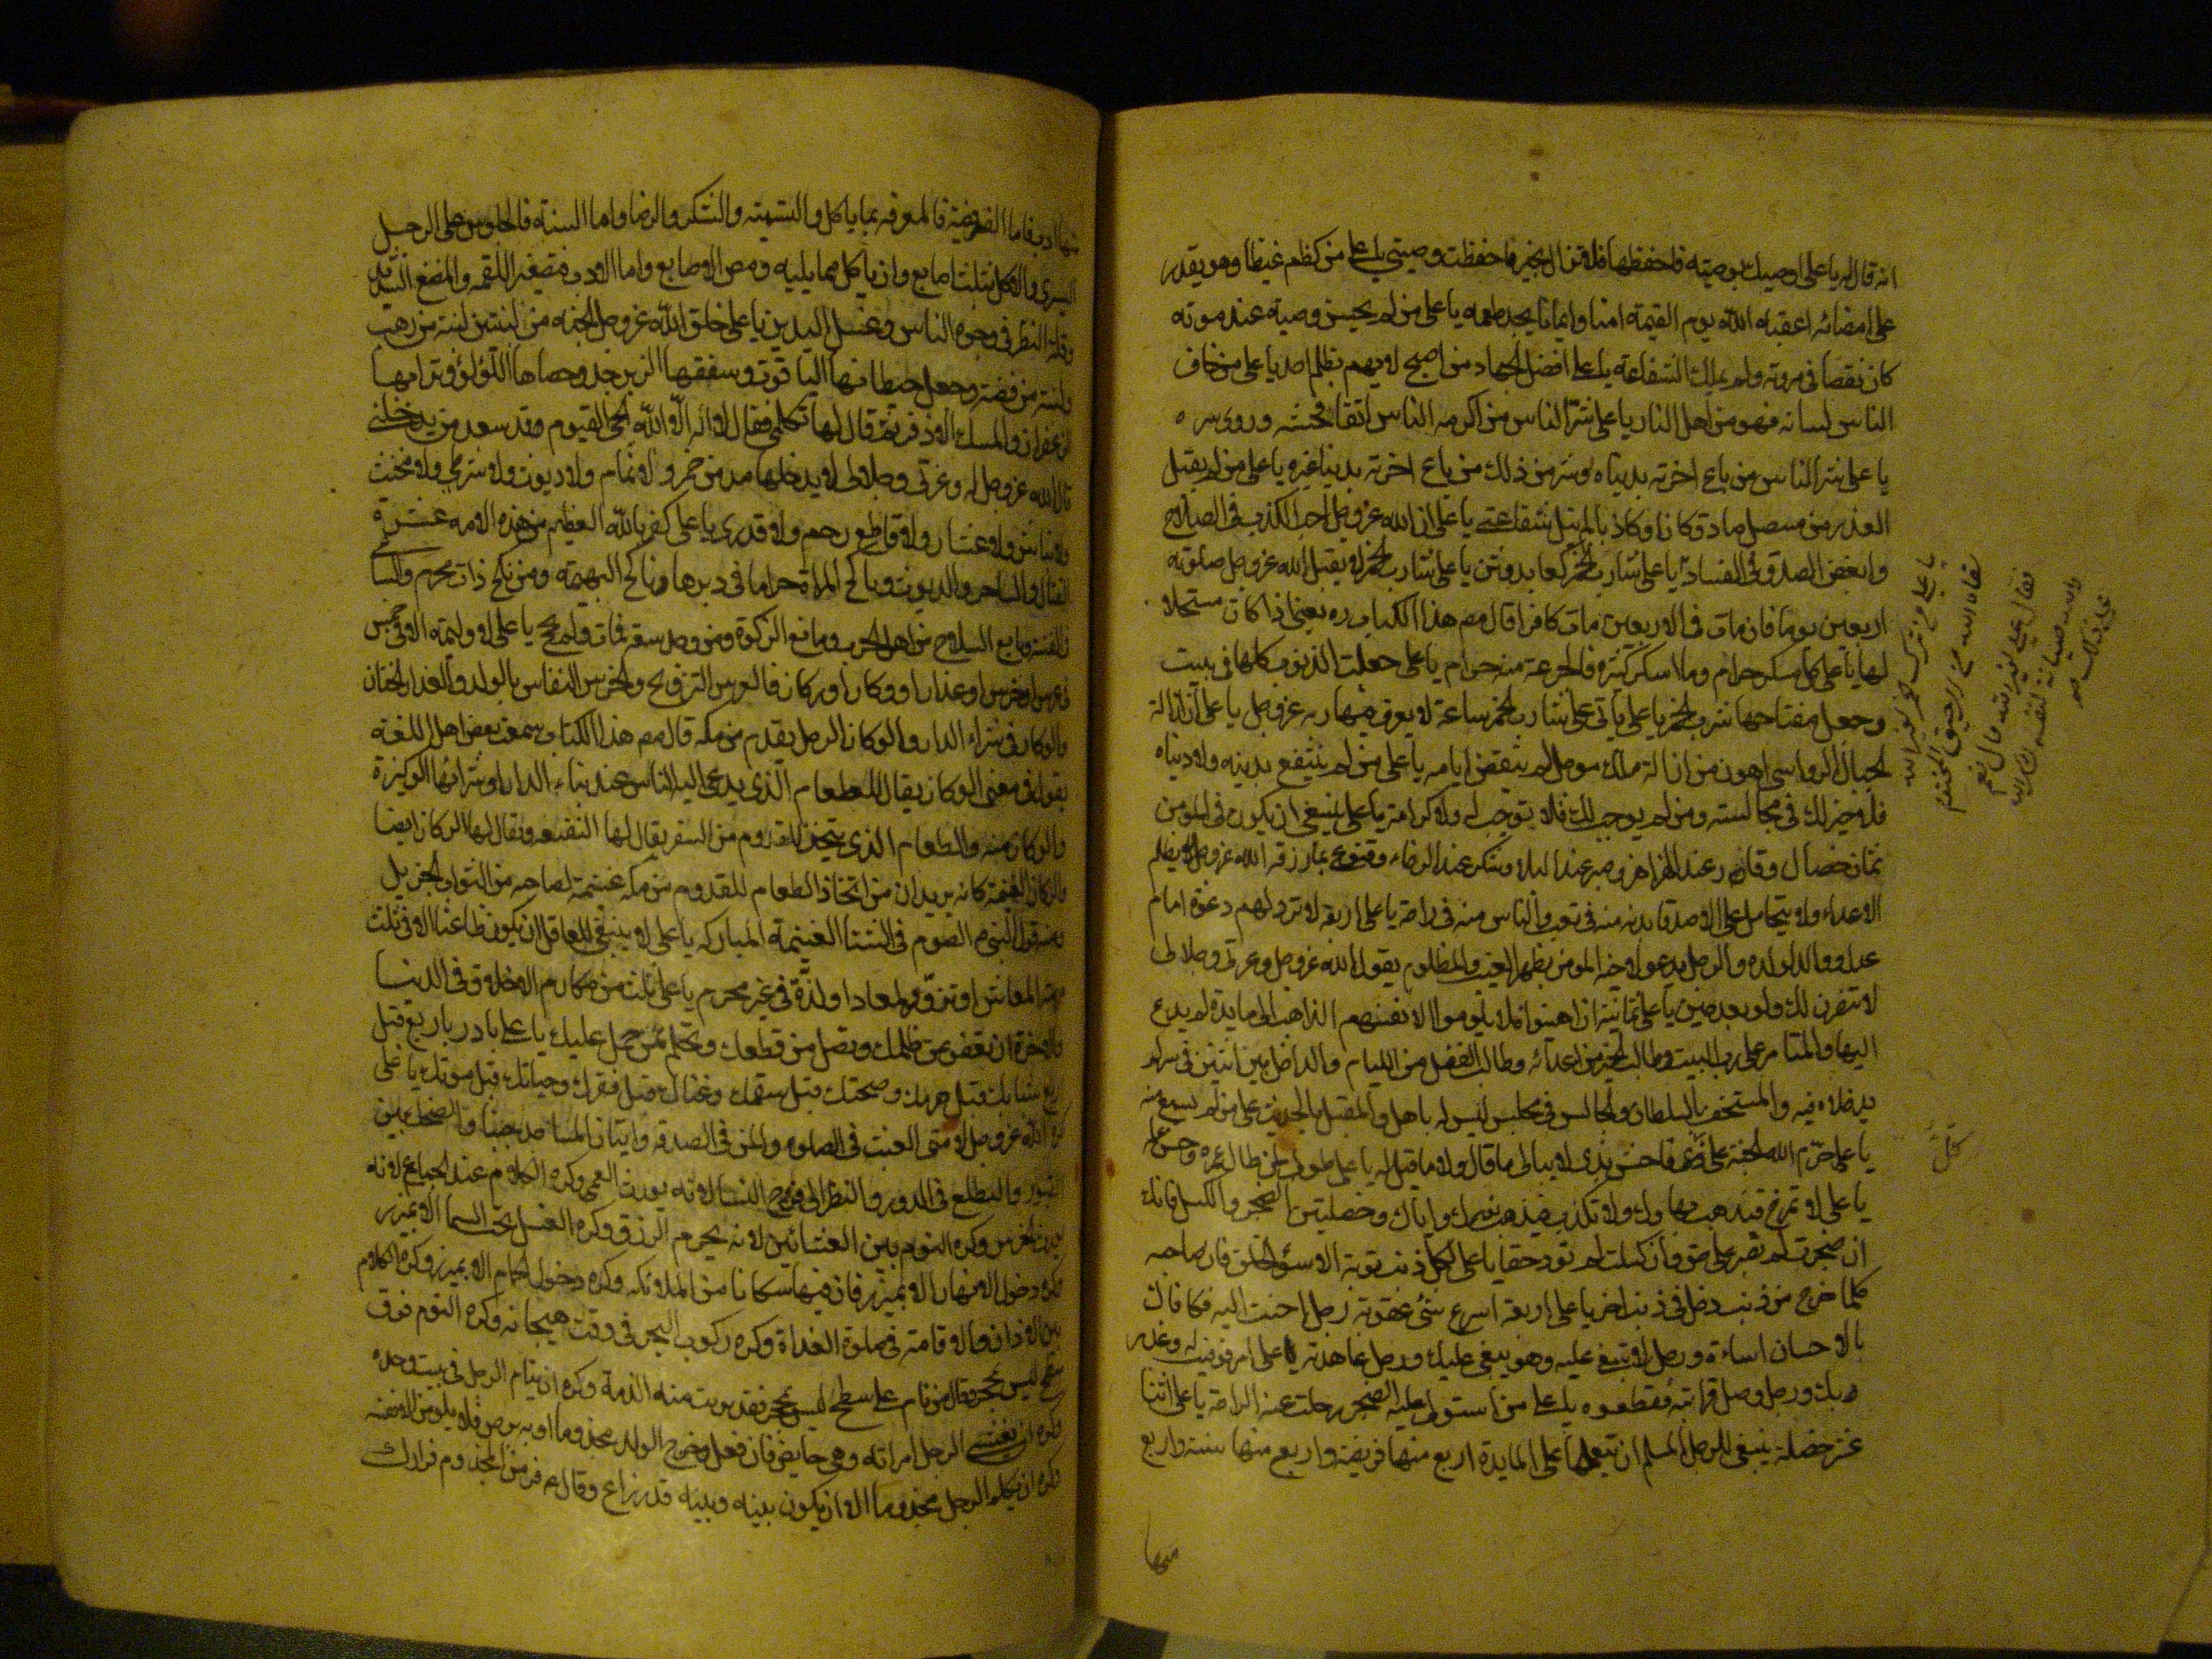 انه قال له يا على اوصيك بوصيته فاحفظها فلا تزال بخير ما حفظت وصيتى يا على من كظم غيظا وهو يقدر
على امضائه اعقبه الله يوم القيمة امنا وايمانا يجد طعمه يا على من لم يحسن وصيته عند موته
كان نقصا فى مروته ولم يملك الشفاعة يا على افضل الجهاد من اصبح لا يهم بظلم احد يا على من خاف
الناس لسانه فهو من اهل النار يا على شر الناس من اكرمه الناس اتقا فحشه وروى شره
يا على شر الناس من باع اخرته بدنياه وشر من ذلك من باع اخرته بدنيا غيره يا على من لم يقبل
العذر من متنصل صادقا كان او كاذبا لم ينل شفاعتى يا على ان الله عز وجل احب الكذب فى الصلاح
وابغض الصدق فى الفساد يا على شارب الخمر كعابد وثن يا على شارب الخمر لا يقبل الله عز وجل صلوته
اربعين يوما فان مات فى الاربعين مات كافرا قال مص هذا الكتاب ره يعنى اذا كان مستحلا
لها يا على كل مسكر حرام وما اسكر كثيره فالجرعة منه حرام يا على جعلت الذنوب كلها فى بيت
وجعل مفتاحها شرب الخمر يا على ياتى على شارب الخمر ساعة لا يعرف فيها ربه عز وجل يا على ان ازالة
الجبال الرواسى اهون من ازالة ملك موجل لم تنقض ايامه يا على من لم تنتفع بدينه ولا دنياه
فلا خير لك فى مجالسته ومن لم يوجب لك فلا توجب له ولا كرامة يا على ينبغى ان يكون فى المومن
ثمان خصال وقار عند الهزاهز وصبر عند البلا وشكر عند الرخاء وقنوع بما رزقه الله عز وجل لا يظلم
الاعداء ولا يتحامل على الاصدقا بدنه منه فى تعب والناس منه فى راحة يا على اربعة لا ترد لهم دعوة امام
عدل ووالد لولده والرجل يدعو لاخيه المومن بظهر الغيب والمظلوم يقول الله عز وجل وعزتى وجلالى
لانتصرن لك ولو بعد حين يا على ثمانية ان اهينوا فلا يلوموا الا انفسهم الذاهب الى مايدة لم يدع
اليها والمتامر على رب البيت وطالب الخير من اعدائه وطالب الفضل من الليام والداخل بين اثنين فى سر لم
يدخلاه فيه والمستخف بالسلطان والجالس فى مجلس ليس له باهل والمقبل بالحديث على من لم يسمع منه
يا على حرم الله الجنة على كل فاحش بذى لا يبالى ما قال ولا ما قيل له يا على طوبى لمن طال عمره وحسن عمله
يا على لا تمزح فيذهب بهاوك ولا تكذب فيذهب نورك واياك وخصلتين الضجر والكسل فانك
ان ضجرت لم تصبر على حق وان كسلت لم تود حقا يا على لكل ذنب توبة الا سوء الخلق فان صاحبه
كلما خرج من ذنب دخل فى ذنب اخر يا على اربعة اسرع شئ عقوبة رجل احسنت اليه فكافاك
بالاحسان اساءة ورجل لا تبغى عليه وهو يبغى عليك ورجل عاهدته على امر فوفيت له وغدر
بك ورجل وصل قرابته فقطعوه يا على من استولى عليه الضجر رحلت عنه الراحة يا على اثنتا
عشر خصلة ينبغى للرجل المسلم ان يتعلمها على المايدة اربع منها فريضة واربع منها سنة واربع
منها
يا على من ترك الخمر لغير الله
سقاه الله من الرحيق المختوم
فقال على لغير الله قال نعم
والله صيانة لنفسه
على ذلك
منها ادب فاما الفريضة فالمعرفة بما ياكل والتسمية والشكر والرضا واما السنة فالجلوس على الرجل
اليسرى والاكل بثلث اصابع وان ياكل مما يليه ومص الاصابع واما الادب فتصغير اللقمة والمضغ الشديد
وقلة النظر فى وجوه الناس وغسل اليدين يا على خلق الله عز وجل الجنة من لبنتين لبنة من ذهب
ولبنة من فضة وجعل حيطانها الياقوت وسقفها الزبرجد وحصاها اللؤلؤ وترابها
الزعفران والمسك الاذفر ثم قال لها تكلمى فقال لا اله الا الله الحى القيوم وقد سعد من يدخلنى
قال الله عز وجل له وعزتى وجلالى لا يدخلها مدمن خمر ولا نمام ولا ديوث ولا شرطى ولا مخنث
ولا نباش ولا عشار ولا قاطع رحم ولا قدرى يا على كفر بالله العظيم من هذه الامة عشرة
القتال والساحر والديوث وناكح المراة حراما فى دبرها وناكح البهيمة ومن نكح ذات محرم والساعى
فى الفتنة وبايع السلاح من اهل الحرب ومانع الزكوة ومن وجد سعة فمات ولم يحج يا على لا وليمة الا فى خمس
فى عرس او خرس او عذار او وكار او ركاز فالعرس التزويج والخرس النفاس بالولد والعذار الختان
والوكار فى شراء الدار والركاز الرجل يقدم من مكة قال مص هذا الكتاب سمعت بعض اهل اللغة
يقول فى معنى الوكار يقال للطعام الذى يدعى اليه الناس عند بناء الدار او شرائها الوكيرة
والوكار منه والطعام الذى يتخذ للقدوم من السفر يقال لها النقيعة ويقال لها الركاز ايضا
والركاز الغنيمة كانه يريد ان من اتخاذ الطعام للقدوم من مكة غنيمة لصاحبه من الثواب الجزيل
ومنه قول النبى ص الصوم فى الشتا الغنيمة المباركة يا على لا ينبغى للعاقل ان يكون ظاعنا الا فى ثلث
مرمة لمعاش او تزود لمعاد او لذة فى غير محرم يا على ثلث من مكارم الاخلاق فى الدنيا
والاخرة ان تعفو عمن ظلمك وتصل من قطعك وتحلم عمن جهل عليك يا على بادر باربع قبل
اربع شبابك قبل هرمك وصحتك قبل سقمك وغناك قبل فقرك وحياتك قبل موتك يا على
كره الله عز وجل لامتى العبث فى الصلوة والمن فى الصدقة واتيان المساجد جنبا والضحك بين
القبور والتطلع فى الدور والنظر الى فروج النسا لانه يورث العمى وكره الكلام عند الجماع لانه
يورث الخرس وكره النوم بين العشائين لانه يحرم الرزق وكره الغسل تحت السما الا بميزر
وكره دخول الانهار الا بميزر فان فيها سكانا من الملائكة وكره دخول الحمام الا بميزر وكره الكلام
بين الاذان والاقامة فى صلوة الغداة وكره ركوب البحر فى وقت هيجانه وكره النوم فوق
سطح ليس بمحجر وقال من نام على سطح ليس بمحجر فقد برئت منه الذمة وكره ان ينام الرجل فى بيت وحده
وكره ان يغشى الرجل امراته وهى حايض فان فعل وخرج الولد مجذوما او به برص فلا يلومن الا نفسه
وكره ان يكلم الرجل مجذوما الا ان يكون بينه وبينه قدر ذراع وقال ع فر من المجذوم فرارك